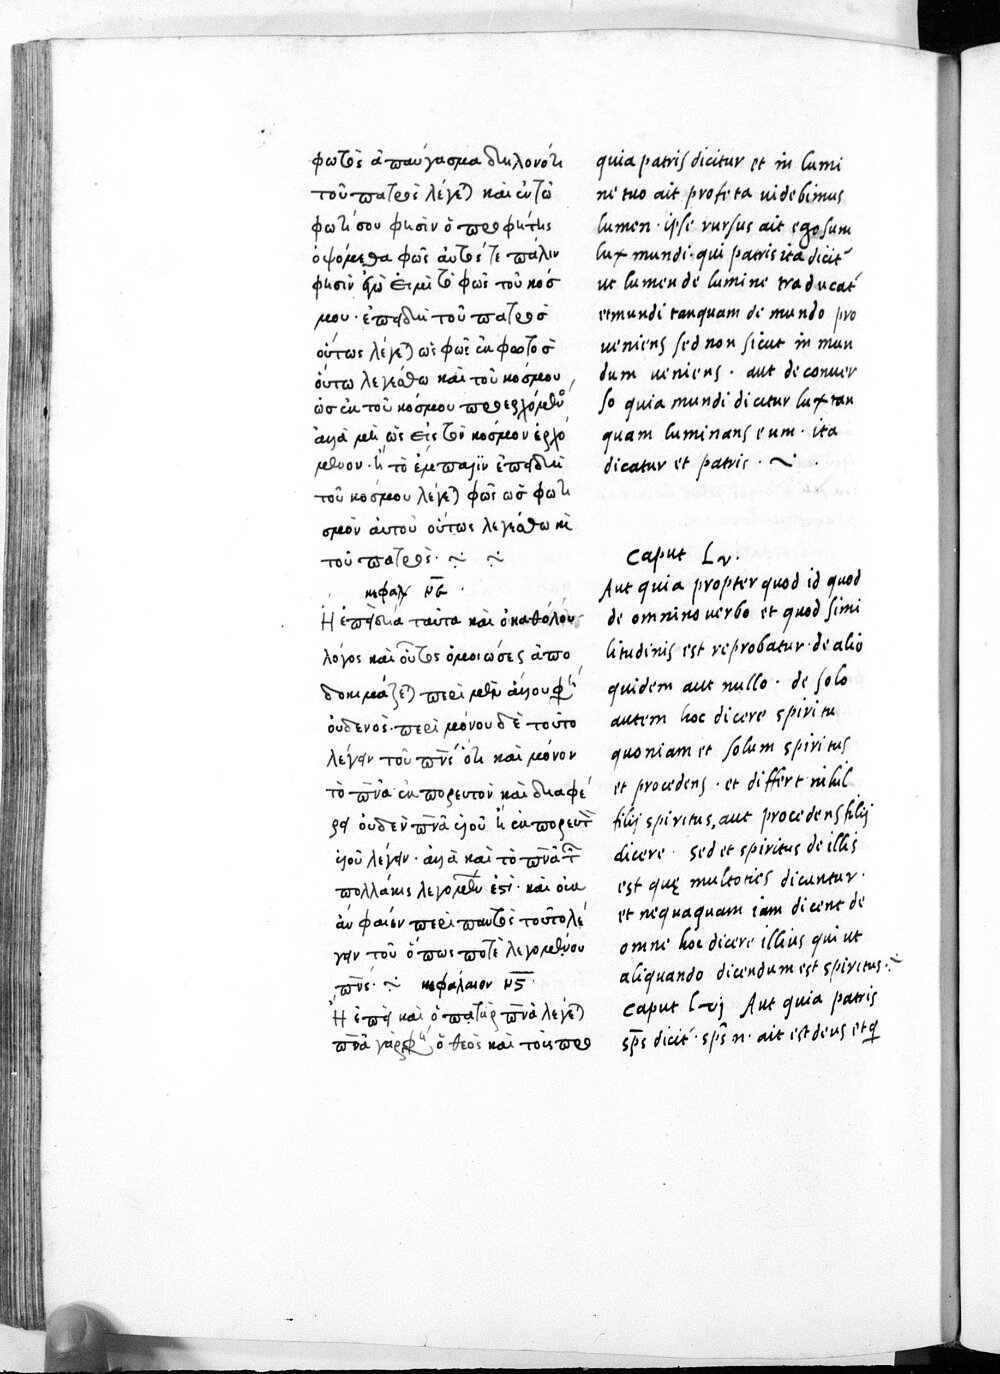 φωτὸς ἀπαύγασμα δηλονότι
τοῦ πατρὸς λέγεται καὶ ἐν τῶ
φωτί σου φησὶν ὁ προφήτης
ὀψόμεθα φῶς αὐτὸς τε πάλιν
φησὶν ἐγὼ εἰμὶ τὸ φῶς τοῦ κόσ
μου· ἐπειδὴ τοῦ πατρὸς
οὕτως λέγεται ὡς φῶς ἐκ φωτὸς
οὕτω λεγέσθω καὶ τοῦ κόσμου,
ὡς ἐκ τοῦ κόσμου προερχόμενον
ἀλλὰ μὴ ὡς εἰς τὸν κόσμον ἐρχό
μενον· ἢ τὸ ἔμπαλιν ἐπειδὴ
τοῦ κόσμου λέγεται φῶς ὡς φωτι
σμὸν αὐτοῦ οὕτως λεγέσθω καὶ
τοῦ πατρὸς·
κεφαλ νε ·
Ἢ ἐπειδὴ ταῦτα καὶ ὁ καθόλου
λόγος καὶ οὗτος ὁμοιώσες ἀπο
δοκιμάζεται περὶ μὲν ἄλλου φησὶ
οὐδενὸς· περὶ μόνου δὲ τοῦτο
λέγειν τοῦ πνς ὅτι καὶ μόνον
τὸ πνα ἐκπορευτὸν καὶ διαφέ
ρει οὐδὲν πνα υἱοῦ ἢ ἐκπορευτὸν
υἱοῦ λέγειν· ἀλλὰ καὶ τὸ πνα τῶν
πολλάκις λεγομένων ἐστὶ· καὶ οὐκ
ἂν φαῖεν περὶ παντὸς τοῦτο λέ
γειν τοῦ ὅπως ποτὲ λεγομένου
πνς· κεφάλαιον νς ·
Ἢ ἐπεὶ καὶ ὁ πατὴρ πνα λέγεται
πνα γὰρ φησὶ ὁ θεὸς καὶ τοὺς προ
quia patris dicitur et in lumi
ne tuo ait profeta uidebimus
lumen · ipse rursus ait ego sum
lux mundi· qui patris ita dicit̃
ut lumen de lumine traducat̃
et mundi tanquam de mundo pro
ueniens sed non sicut in mun
dum ueniens · aut de conuer
so quia mundi dicitur lux tan
quam luminans eum · ita
dicatur et patris ·
caput Lv.
Aut quia propter quod id quod
de omnino uerbo et quod simi
litudinis est reprobatur· de alio
quidem aut nullo · de solo
autem hoc dicere spiritu
quoniam et solum spiritus
et procedens · et differt nihil
filij spiritus, aut procedens filij
dicere · sed et spiritus de illis
est quę multoties dicuntur·
et nequaquam iam dicent de
omne hoc dicere illius qui ut
aliquando dicendum est spiritus·
caput lvj Aut quia patris
sps̃ dicit̃· sps̃ n· ait est deus et q